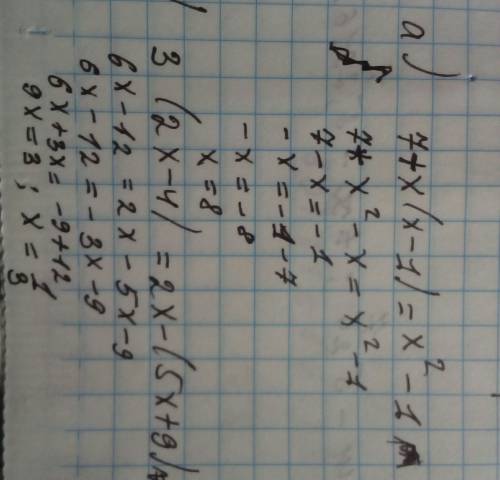 a) 7+x(x-1)=x²-1
7+x²-x=x²-1
7-x=-1
-x=-1-7
-x=-8
x=8
3(2x-4)=2x-(5x+9)
6x-12=2x-5x-9
6x-12=-3x-9
6x+3x=-9+12
9x=3; x=1/3